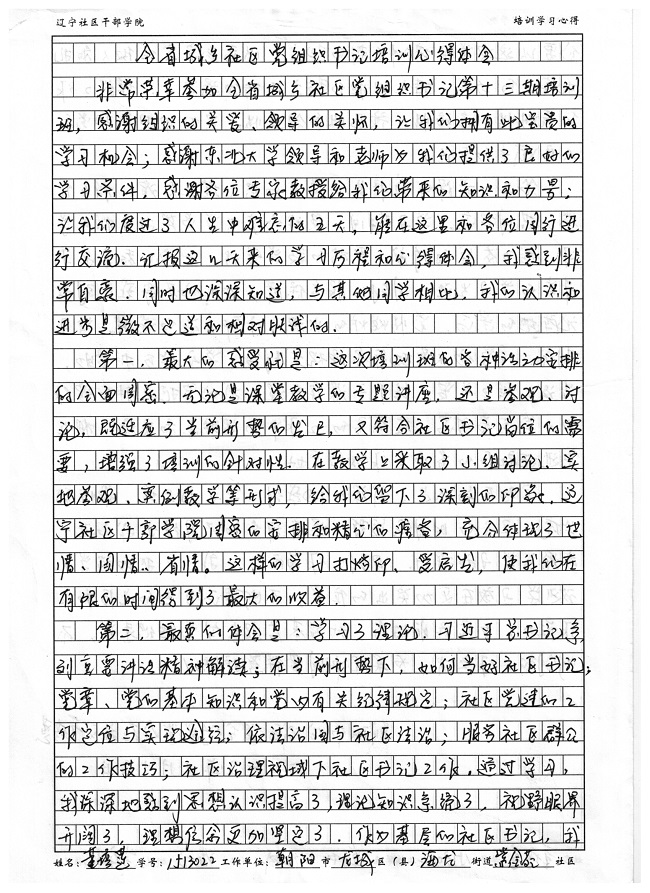 辽宁社区干部学院 培训学习心得
全省城乡社区党组织书记培训心得体会
非常荣幸参加全省城乡社区党组织书记第十三期培训
班，感谢组织的关爱、领导的关怀，让我们拥有此宝贵的
学习机会；感谢东北大学领导和老师为我们提供了良好的
学习条件，感谢各位专家教授给我们带来的知识和力量；
让我们度过了人生中难忘的五天，能在这里和各位同行进
行交流、汇报这几天来的学习历程和心得体会，我感到非
常自豪．同时也深深知道，与其他同学相比，我的认识和
进步是微不足道和相对肤浅的．
第一．最大的感受就是：这次培训班的各种活动安排
的全面周密．无论是课堂教学的专题讲座，还是参观、讨
论，既适应了当前形势的发展，又符合社区书记岗位的需
要，增强了培训的针对性．在教学上采取了小组讨论、实
地参观、案例教学等形式，给我们留下了深刻的印象．辽
宁社区干部学院周密的安排和精心的，充分体现了
情、国情、省情。这样的学习打烙印、受启发，使我们在
有限的时间得到了最大的收益．
第二．最真的体会是：学习了理论．习近平总书记系
列重要讲话精神解读；在当前形势下，如何当好社区书记；
党章、党的基本知识和党内有关纪律规定；社区党建的工
作定位与实现途径；依法治国与社区法治；服务社区群众
的工作技巧；社区治理视域下社区书记工作．通过学习，
我深深地感到思想认识提高了，理论知识系统了，视野眼界
开阔了，理想信念更加坚定了．作为基层的社区书记，我
姓名： 学号：1413022 工作单位：朝阳市龙城区（县）海龙街道 社区